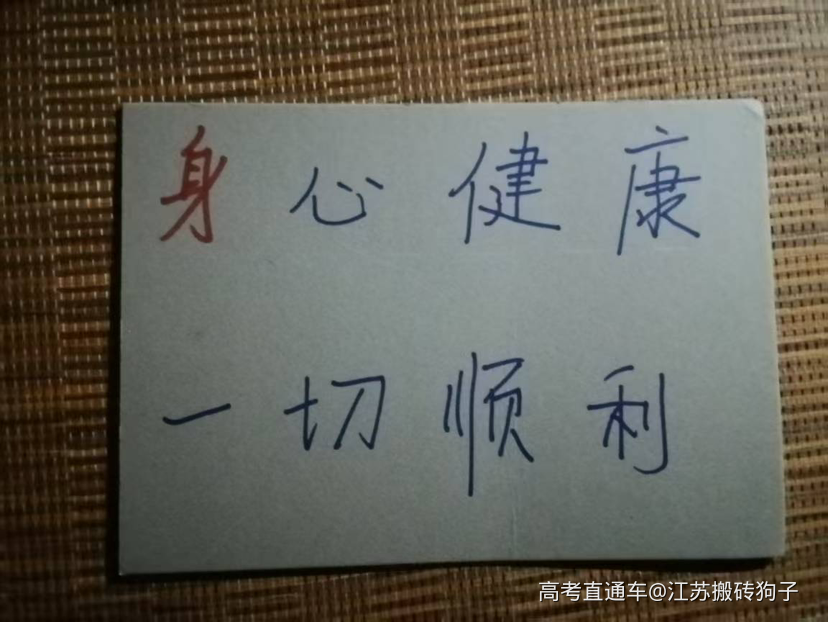 身心健康
一切顺利
高考直通车@江苏搬砖狗子